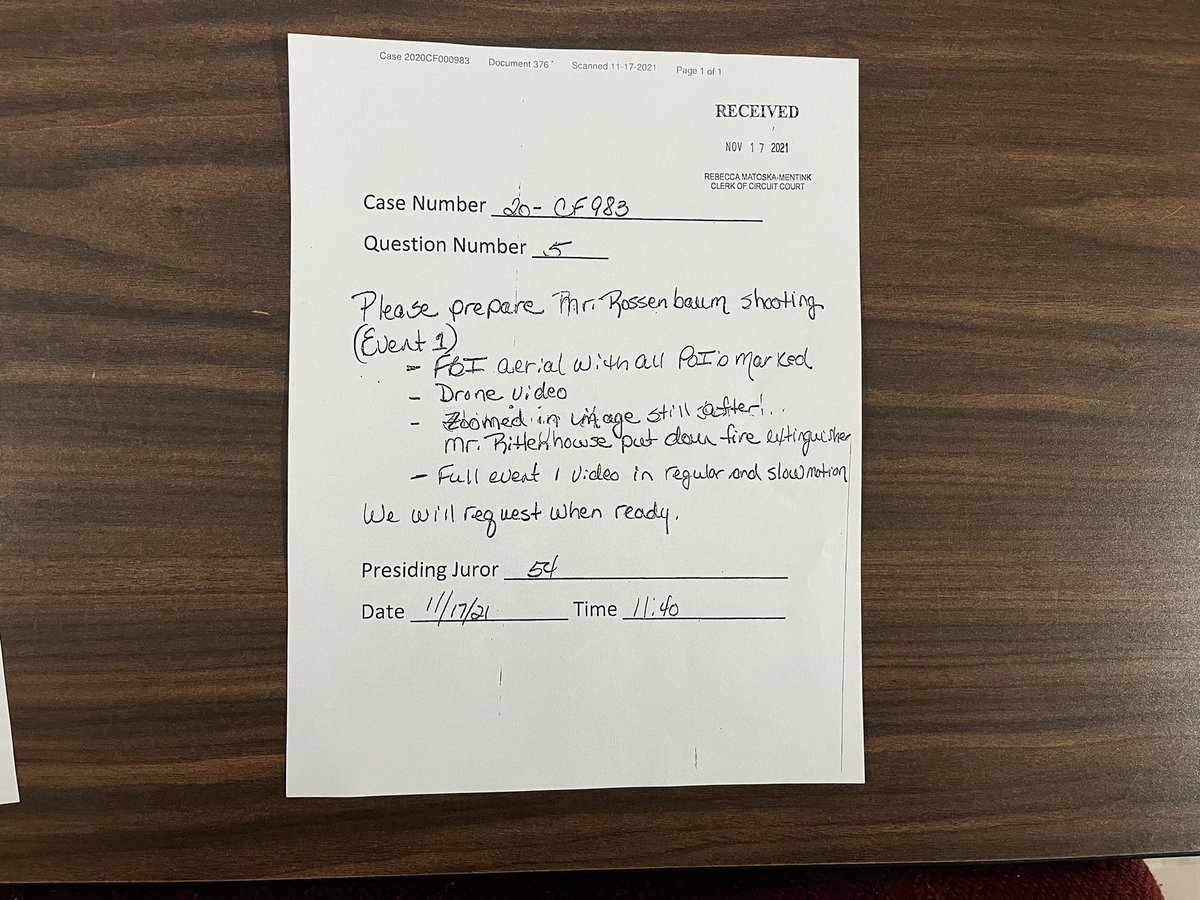 Case 2020CF000983 Document 376 Scanned 11-17-2021 Page 1 of 1
RECEIVED
NOV 17 2021
REBECCA MATOSKA-MENTINK
CLERK OF CIRCUIT COURT
Case Number 20-CF983
Question Number 5
Please prepare Mr. Rossenbaum shooting
(Event 1)
- FBI aerial with all POI's marked
- Drone video
- Zoomed in image still after
Mr. Rittenhouse put down fire extinguisher
- Full event 1 video in regular and slow motion
We will request when ready.
Presiding Juror 54
Date 11/17/21 Time 11:40